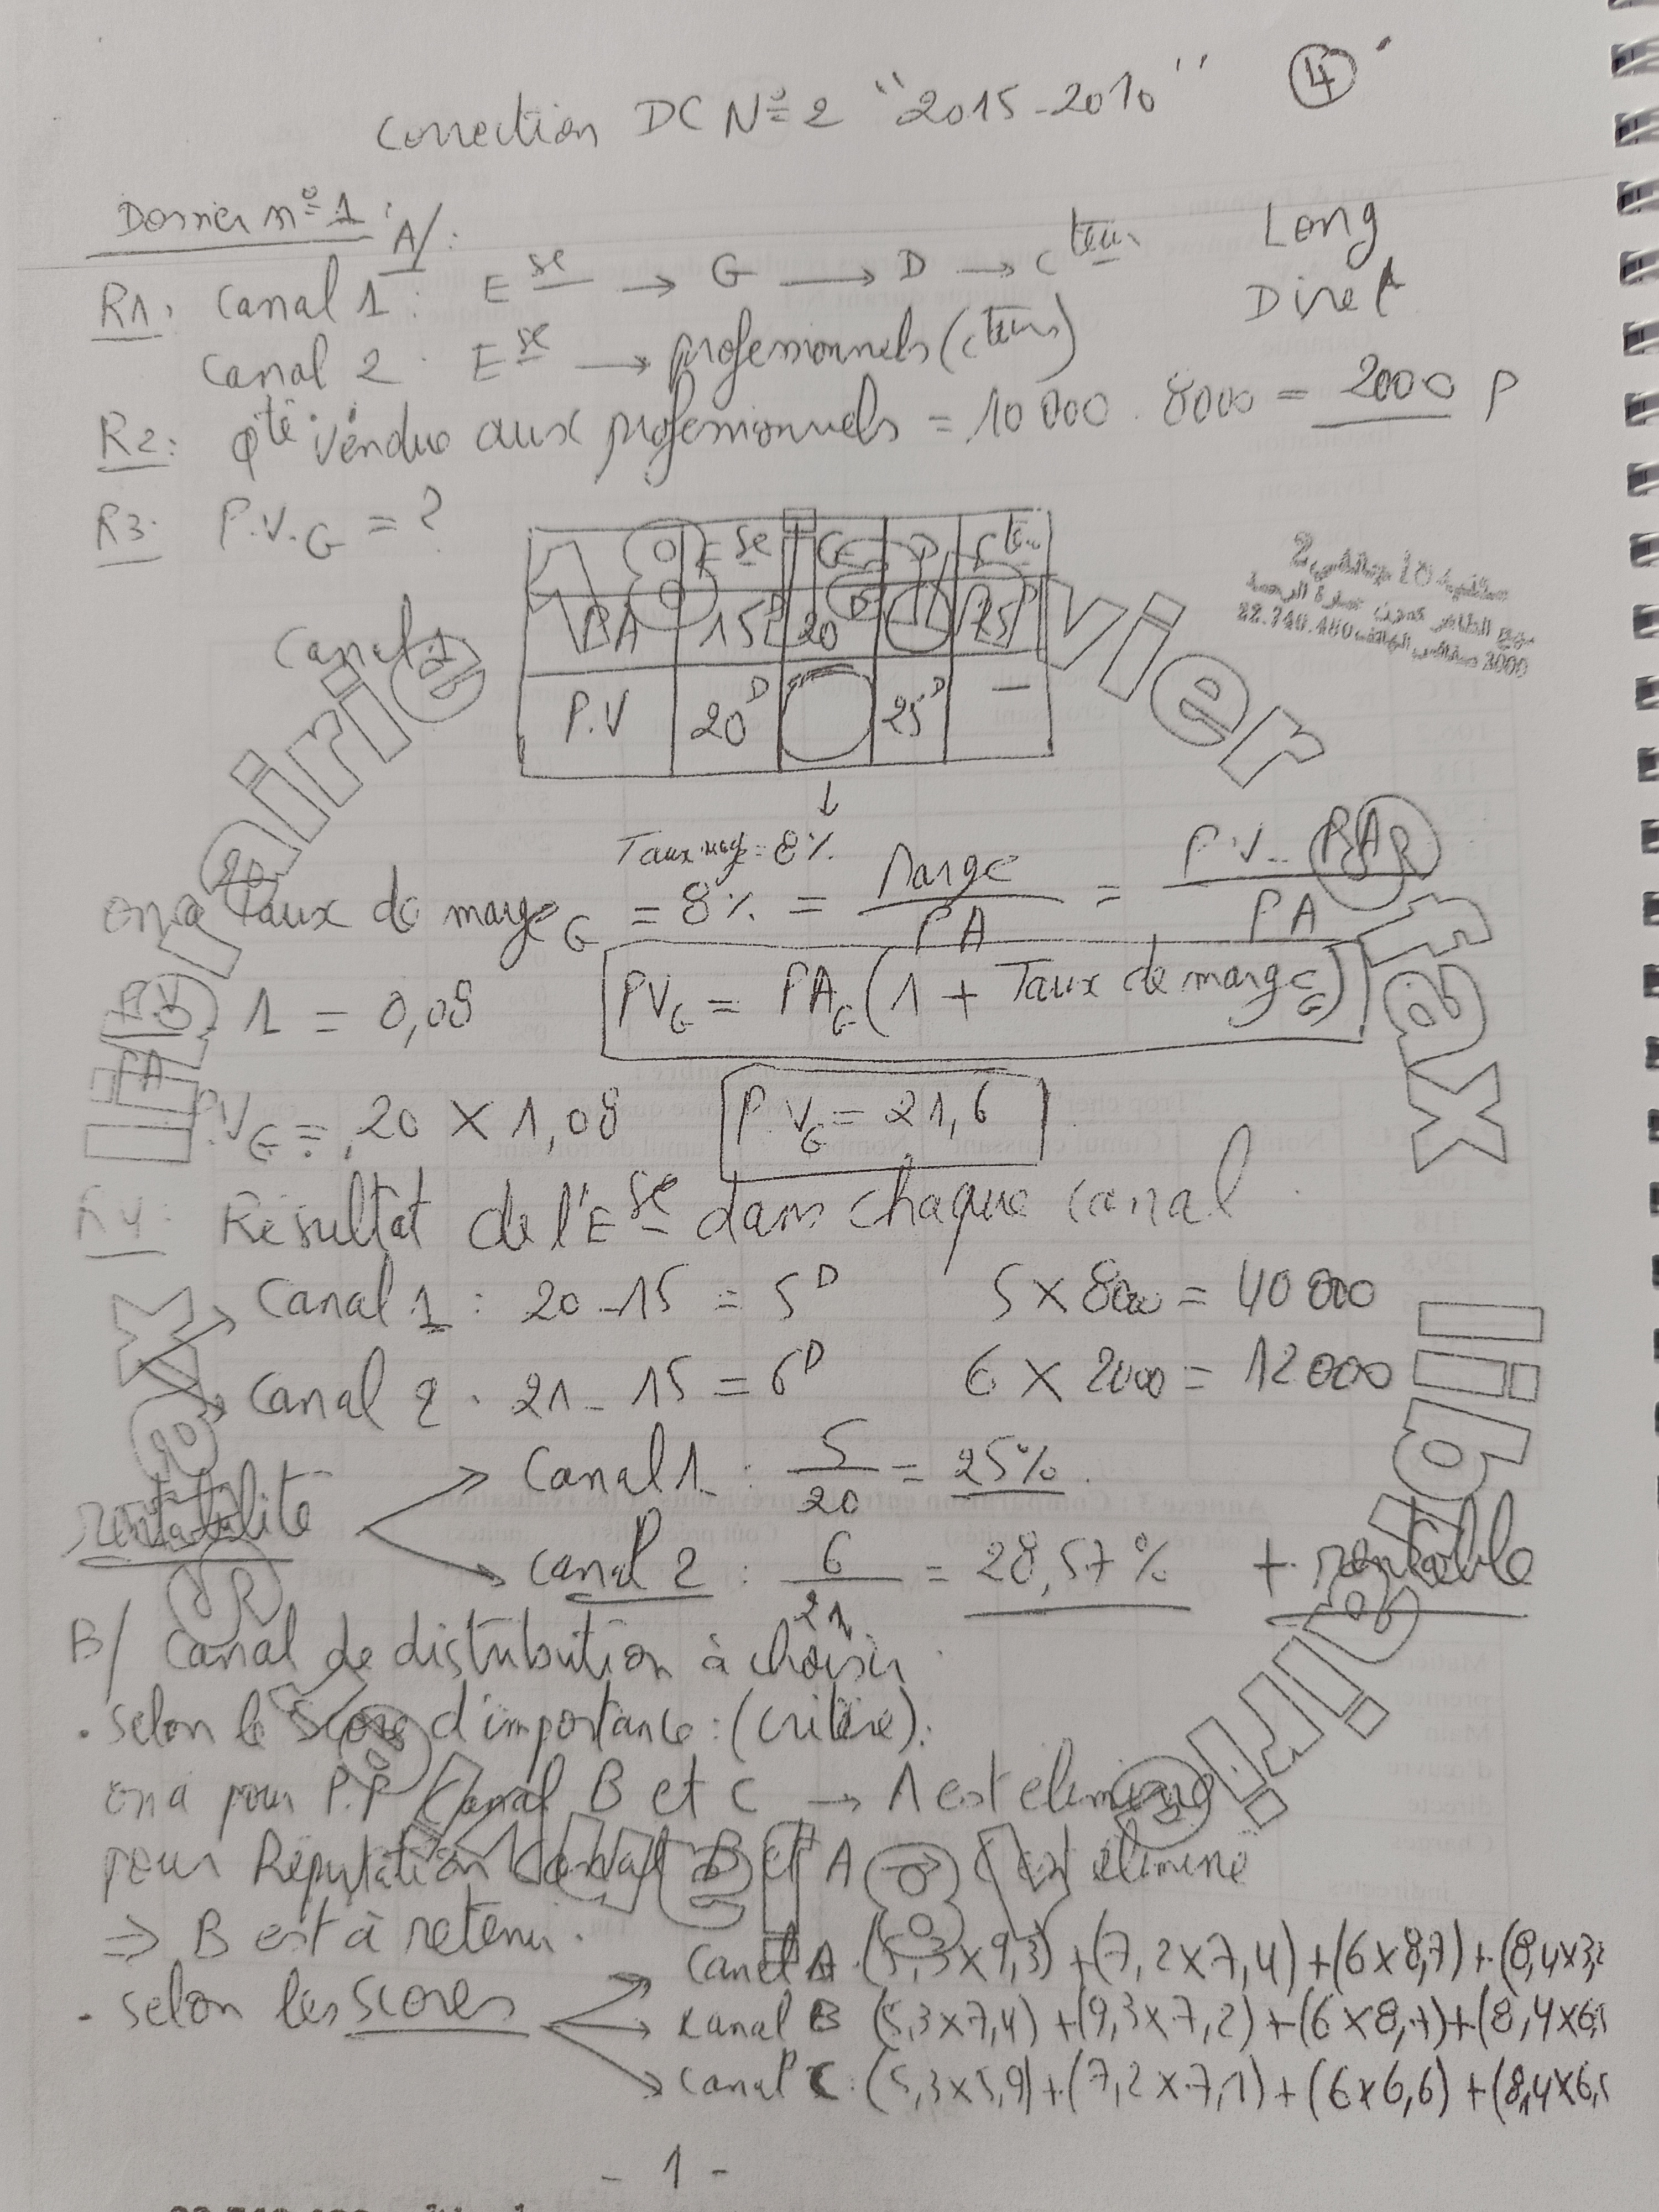 Correction DC N° 2 "2015-2016" ④
Dossier n° 1 :
A/ :
R1. Canal 1 : E se → G → D → C teur Long
Canal 2 : E se → professionnels (C teurs) Direct
R2 : Qté vendue aux professionnels = 10 000 - 8000 = 2000 P
R3. P.V.G = ?
Canal 1
E se G D C teur
PA 15D 20D 25D
P.V 20D 25D —
Taux marge = 8%
on a Taux de marge G = 8% = Marge / PA = P.V - PA / PA
PV / PA - 1 = 0,08 PVG = PAG (1 + Taux de marge G)
P.VG = 20 X 1,08 P.VG = 21,6
R4 : Résultat de l'E se dans chaque canal
Canal 1 : 20 - 15 = 5D 5 X 8000 = 40 000
Canal 2 . 21 - 15 = 6D 6 X 2000 = 12 000
rentabilité
Canal 1 : 5 / 20 = 25%.
Canal 2 : 6 / 21 = 28,57 % + rentable
B/ Canal de distribution à choisir
. Selon le score d'importance : (critère).
on a pour P.P Canal B et C → A est eliminé
pour Réputation Canal B et A → C est éliminé
⇒ B est à retenir.
. Selon les scores
Canal A (5,3x9,3) + (7,2x7,4) + (6x8,7) + (8,4x3,2
Canal B (5,3x7,4) + (9,3x7,2) + (6x8,7) + (8,4x6,
Canal C : (5,3x5,9) + (7,2x7,1) + (6x6,6) + (8,4x6,
- 1 -
librairie 18 janvier sfax
librairie 18 janvier sfax
22.740.480